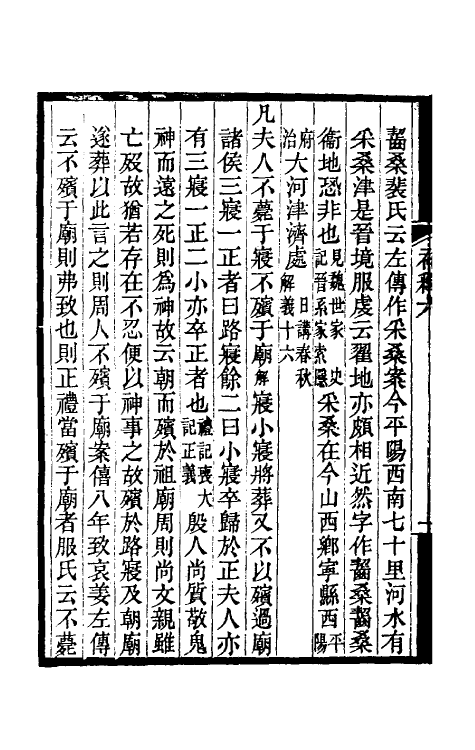 齧桑裴氏云左傳作采桑案今平陽西南七十里河水有
采桑津是晉境服虔云翟地亦頗相近然字作齧桑齧桑
衞地恐非也見魏世家史記晉系家索隱采桑在今山西鄉寧縣西平陽
府大河津濟處日講春秋解義十六
凡夫人不薨于寢不殯于廟解寢小寢將葬又不以殯過廟
諸侯三寢一正者曰路寢餘二曰小寢卒歸於正夫人亦
有三寢一正二小亦卒正者也禮記喪大記正義殷人尚質敬鬼
神而遠之死則爲神故云朝而殯於祖廟周則尚文親雖
亡歿故猶若存在不忍便以神事之故殯於路寢及朝廟
遂葬以此言之則周人不殯于廟案僖八年致哀姜左傳
云不殯于廟則弗致也則正禮當殯于廟者服氏云不薨